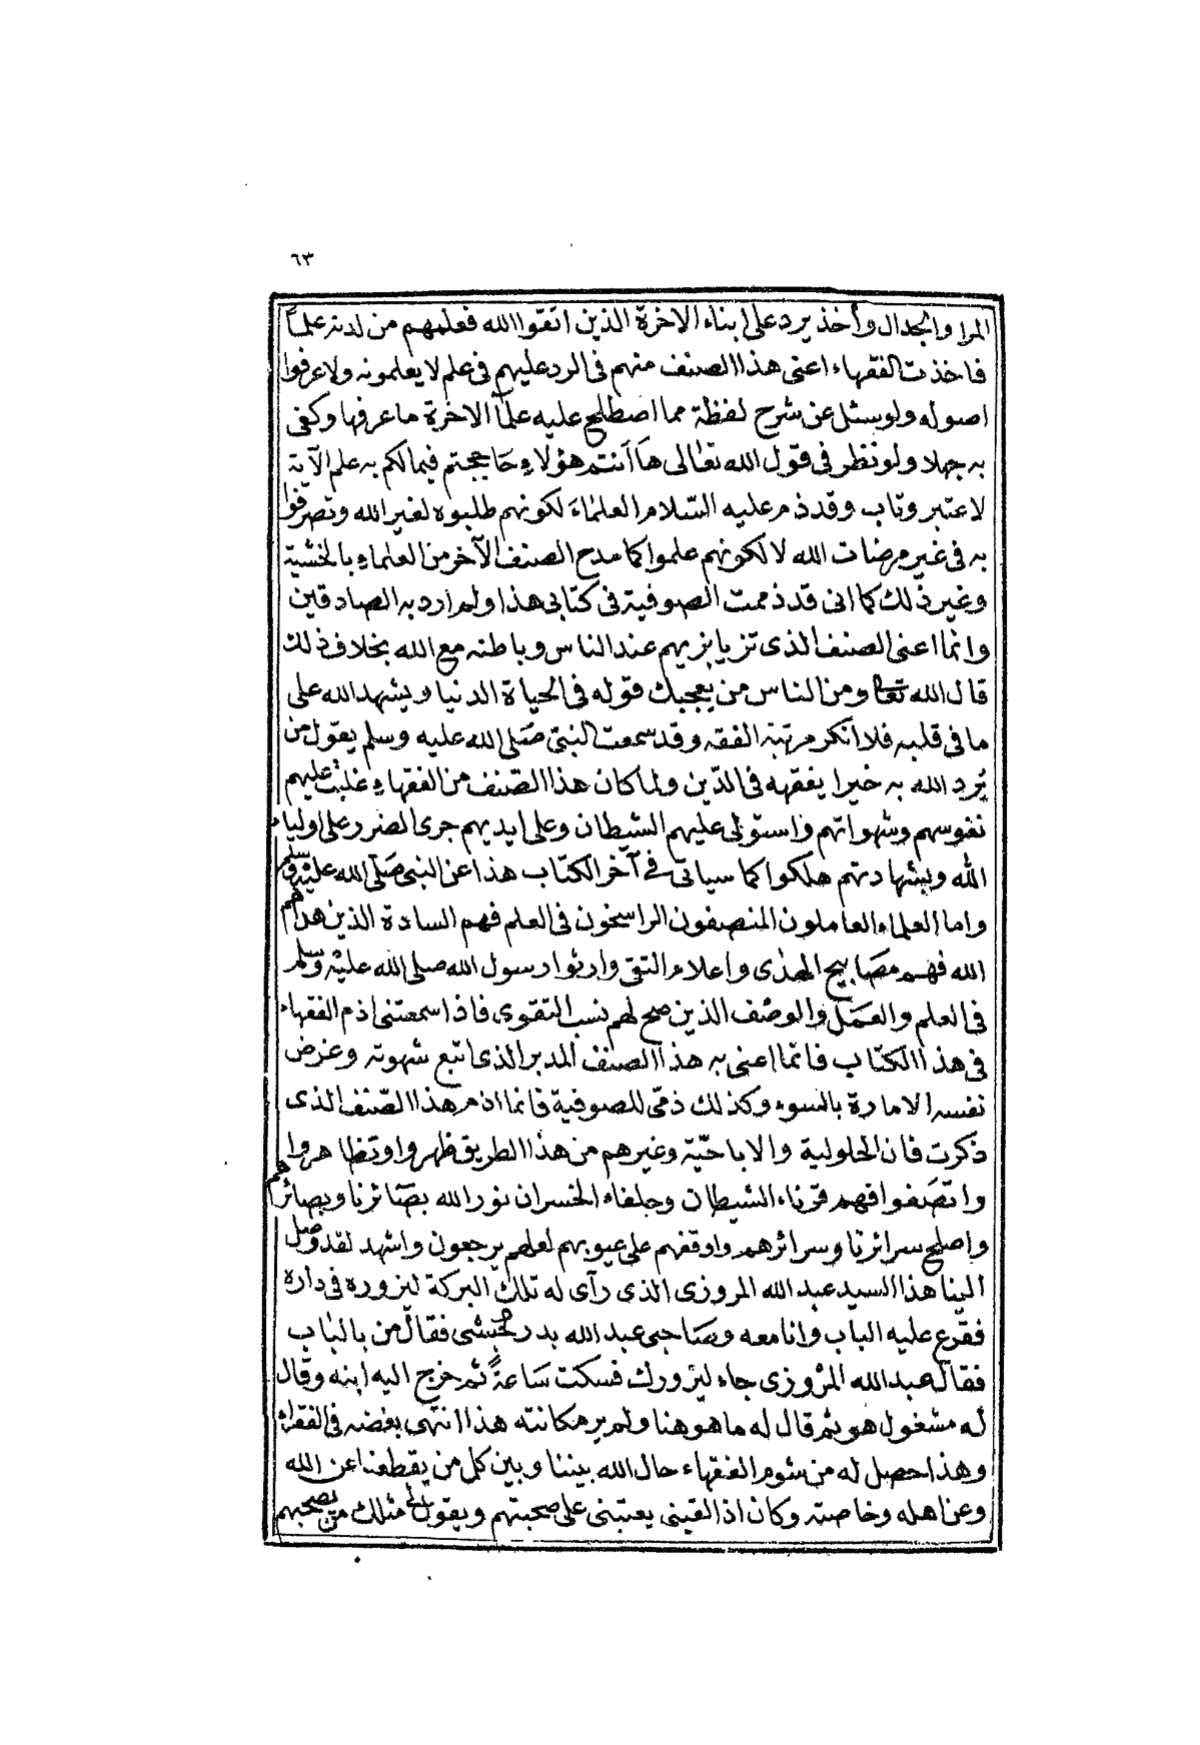 ٦٣
المرا والجدال وأخذ يرد على ابناء الاخرة الذين اتقوا الله فعلمهم من لدنه علماً
فاخذت الفقهاء اعنى هذا الصنف منهم فى الرد عليهم فى علم لا يعلمونه ولا عرفوا
اصوله ولو سئل عن شرح لفظة مما اصطلح عليه علمآ الاخرة ما عرفها وكفى
به جهلا ولو نظر فى قول الله تعالى هآ أنتم هؤلاء حاججتم فيما لكم به علم الآية
لاعتبر وتاب وقد ذم عليه السّلام العلماءَ لكونهم طلبوه لغير الله وتصرّفوا
به فى غير مرضات الله لا لكونهم علموا كما مدح الصنف الآخر من العلماء بالخشية
وغير ذلك كما انى قد ذممت الصوفية فى كتابى هذا ولم ارد به الصادقين
وانما اعنى الصنف الذى تزيا بزيهم عند الناس وباطنه مع الله بخلاف ذلك
قال الله تعا ومن الناس من يعجبك قوله فى الحياة الدنيا ويشهد الله على
ما فى قلبه فلا انكر مرتبة الفقه وقد سمعت النبىّ صَلى الله عليه وسلم يقول من
يُرد الله به خيرا يفقهه فى الدّين ولما كان هذا الصّنف من الفقهاء غلبت عليهم
نفوسهم وشهواتهم واستولى عليهم الشيطان وعلى ايديهم جرى الضرر على اولياء
الله وبشهادتهم هلكوا كما سياتى فى آخر الكتاب هذا عن النبى صَلّى الله عليه وسلم
واما العلماء العاملون المنصفون الراسخون فى العلم فهم السادة الذين هداهم
الله فهم مصَابيح الهدى واعلام التقى وارثوا رسول الله صلى الله عليه وسلم
فى العلم والعمَل والوصف الذين صح لهم نسب التقوى فاذا سمعتنى اذم الفقهاء
فى هذا الكتاب فانما اعنى به هذا الصنف المدبر الذى اتبع شهوته وغرض
نفسه الامارة بالسوء وكذلك ذمّى للصوفية فانما اذم هذا الصّنف الذى
ذكرت فان الحلولية والاباحيّة وغيرهم من هذا الطريق ظهروا وتظاهروا
واتصَفوا فهم قرناء الشيطان وحلفاء الخسران نور الله بصَائرنا وبصائرهم
واصلح سرائرنا وسرائرهم واوقفهم على عيوبهم لعلهم يرجعون واشهد لقد وصل
الينا هذا السيد عبد الله المروزى الذى رآى له تلك البركة ليزوره فى داره
فقرع عليه الباب وانا معه وصَاحبى عبد الله بدر الحبشى فقال من بالباب
فقال عبد الله المرْوزى جاء ليزورك فسكت سَاعةً ثم خرج اليه ابنه وقال
له مشغول هو ثم قال له ما هو هنا ولم ير مكانته هذا انتهى بغضه فى الفقراء
وهذا حصل له من شوم الفقهاء حال الله بيننا وبين كل من يقطعنا عن الله
وعن اهله وخاصته وكان اذا لقينى يعتبنى على صحبتهم ويقول لى مثلك من يصحبهم